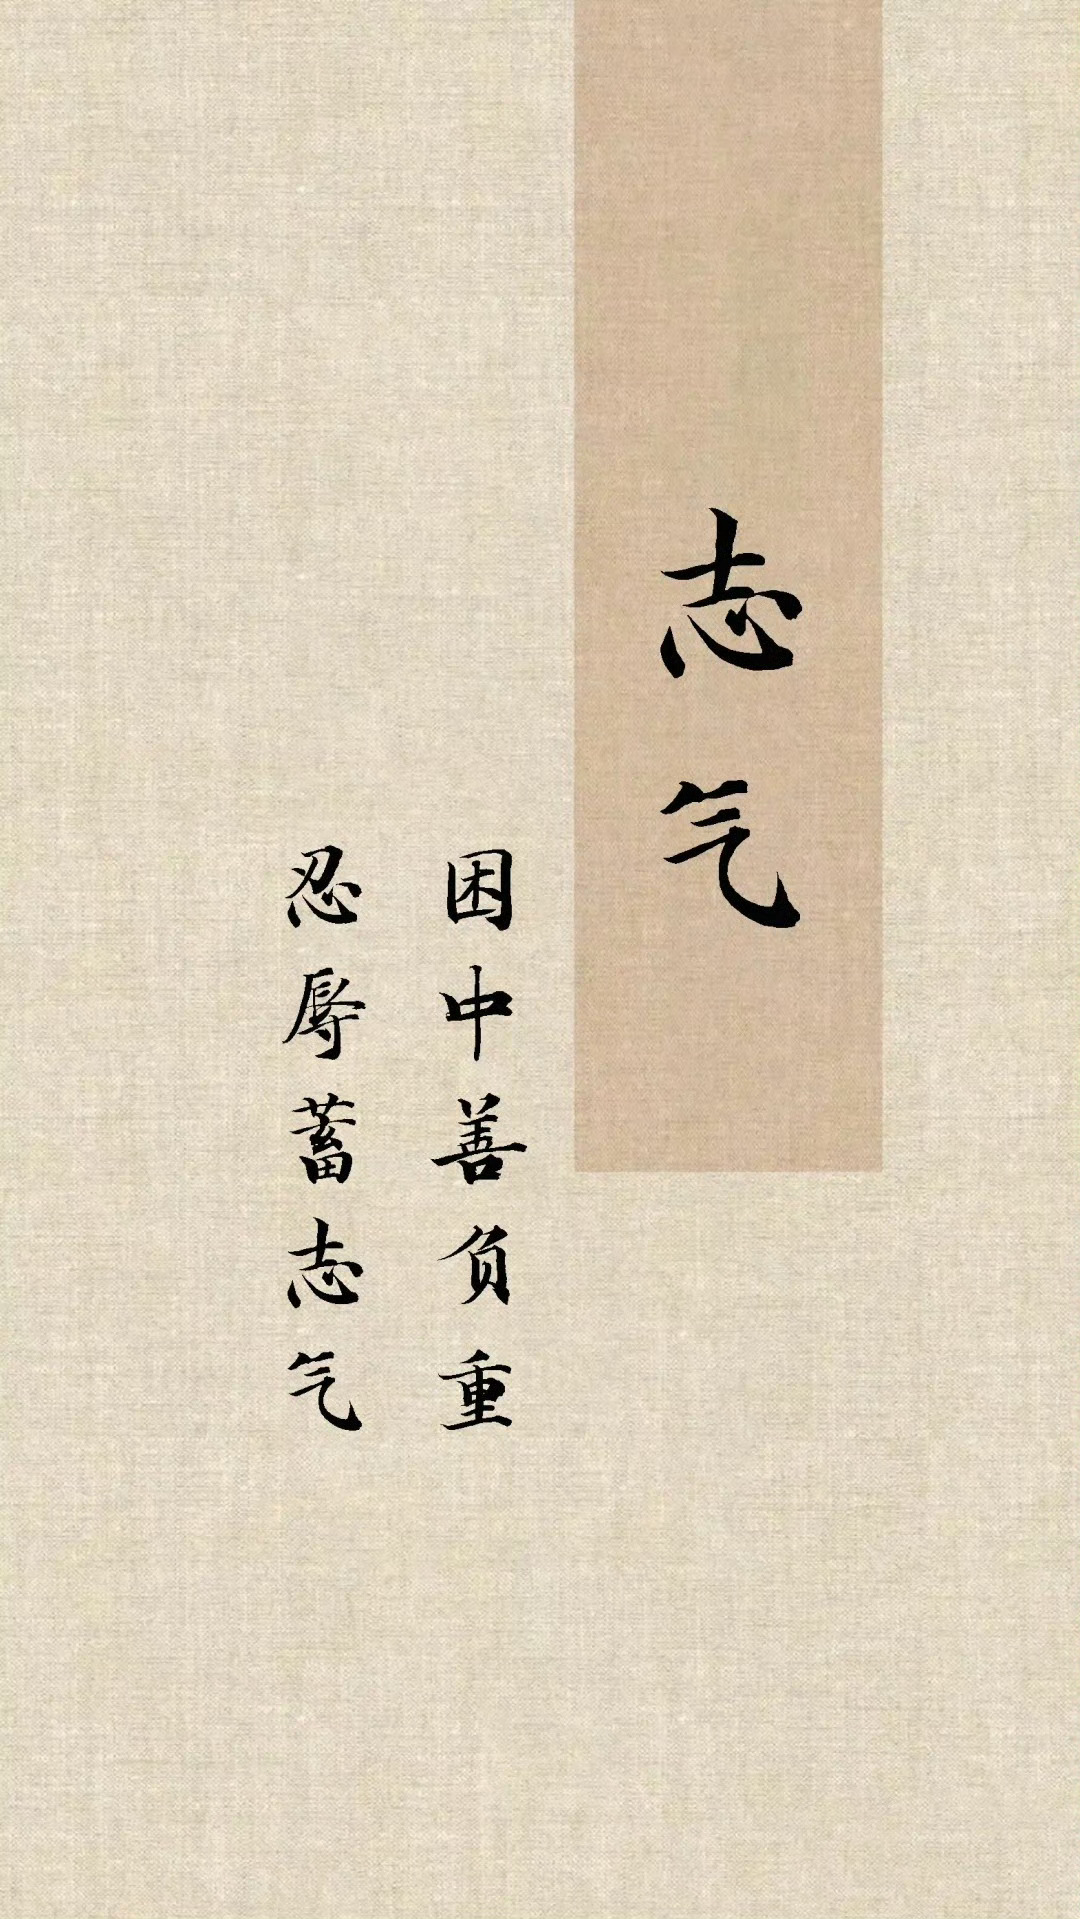 志气
困中善负重
忍辱蓄志气